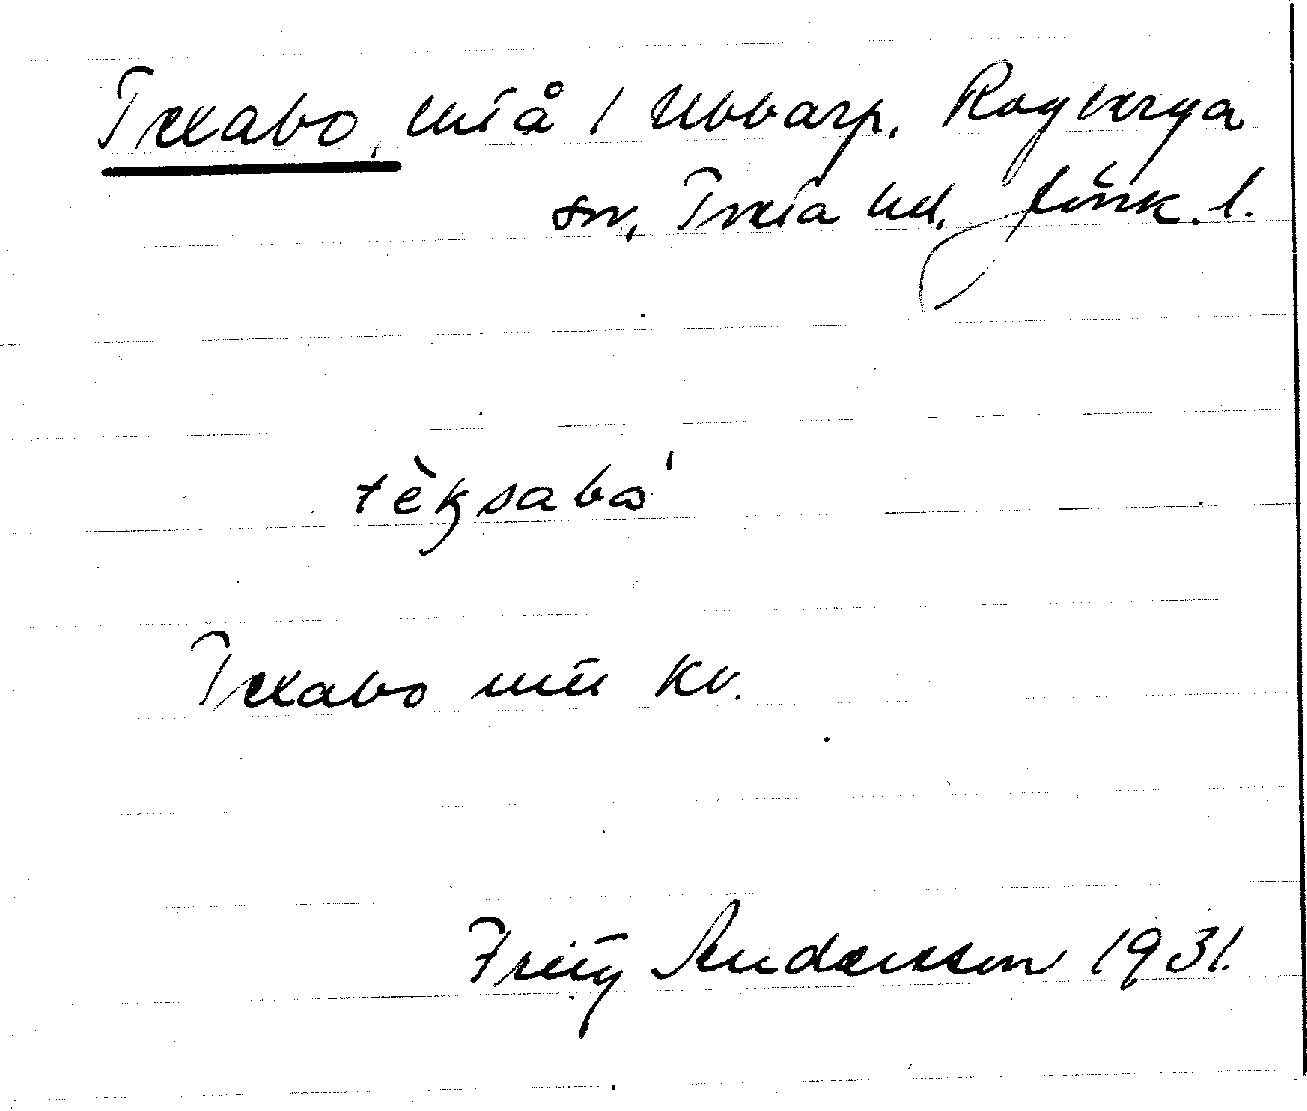 Texabo, utå i Ubbarp. Rogberga
sn, Tveta hd. Jönk. l.
tèksabo'
Texabo utå kv.
Fritz Andersson 1931.